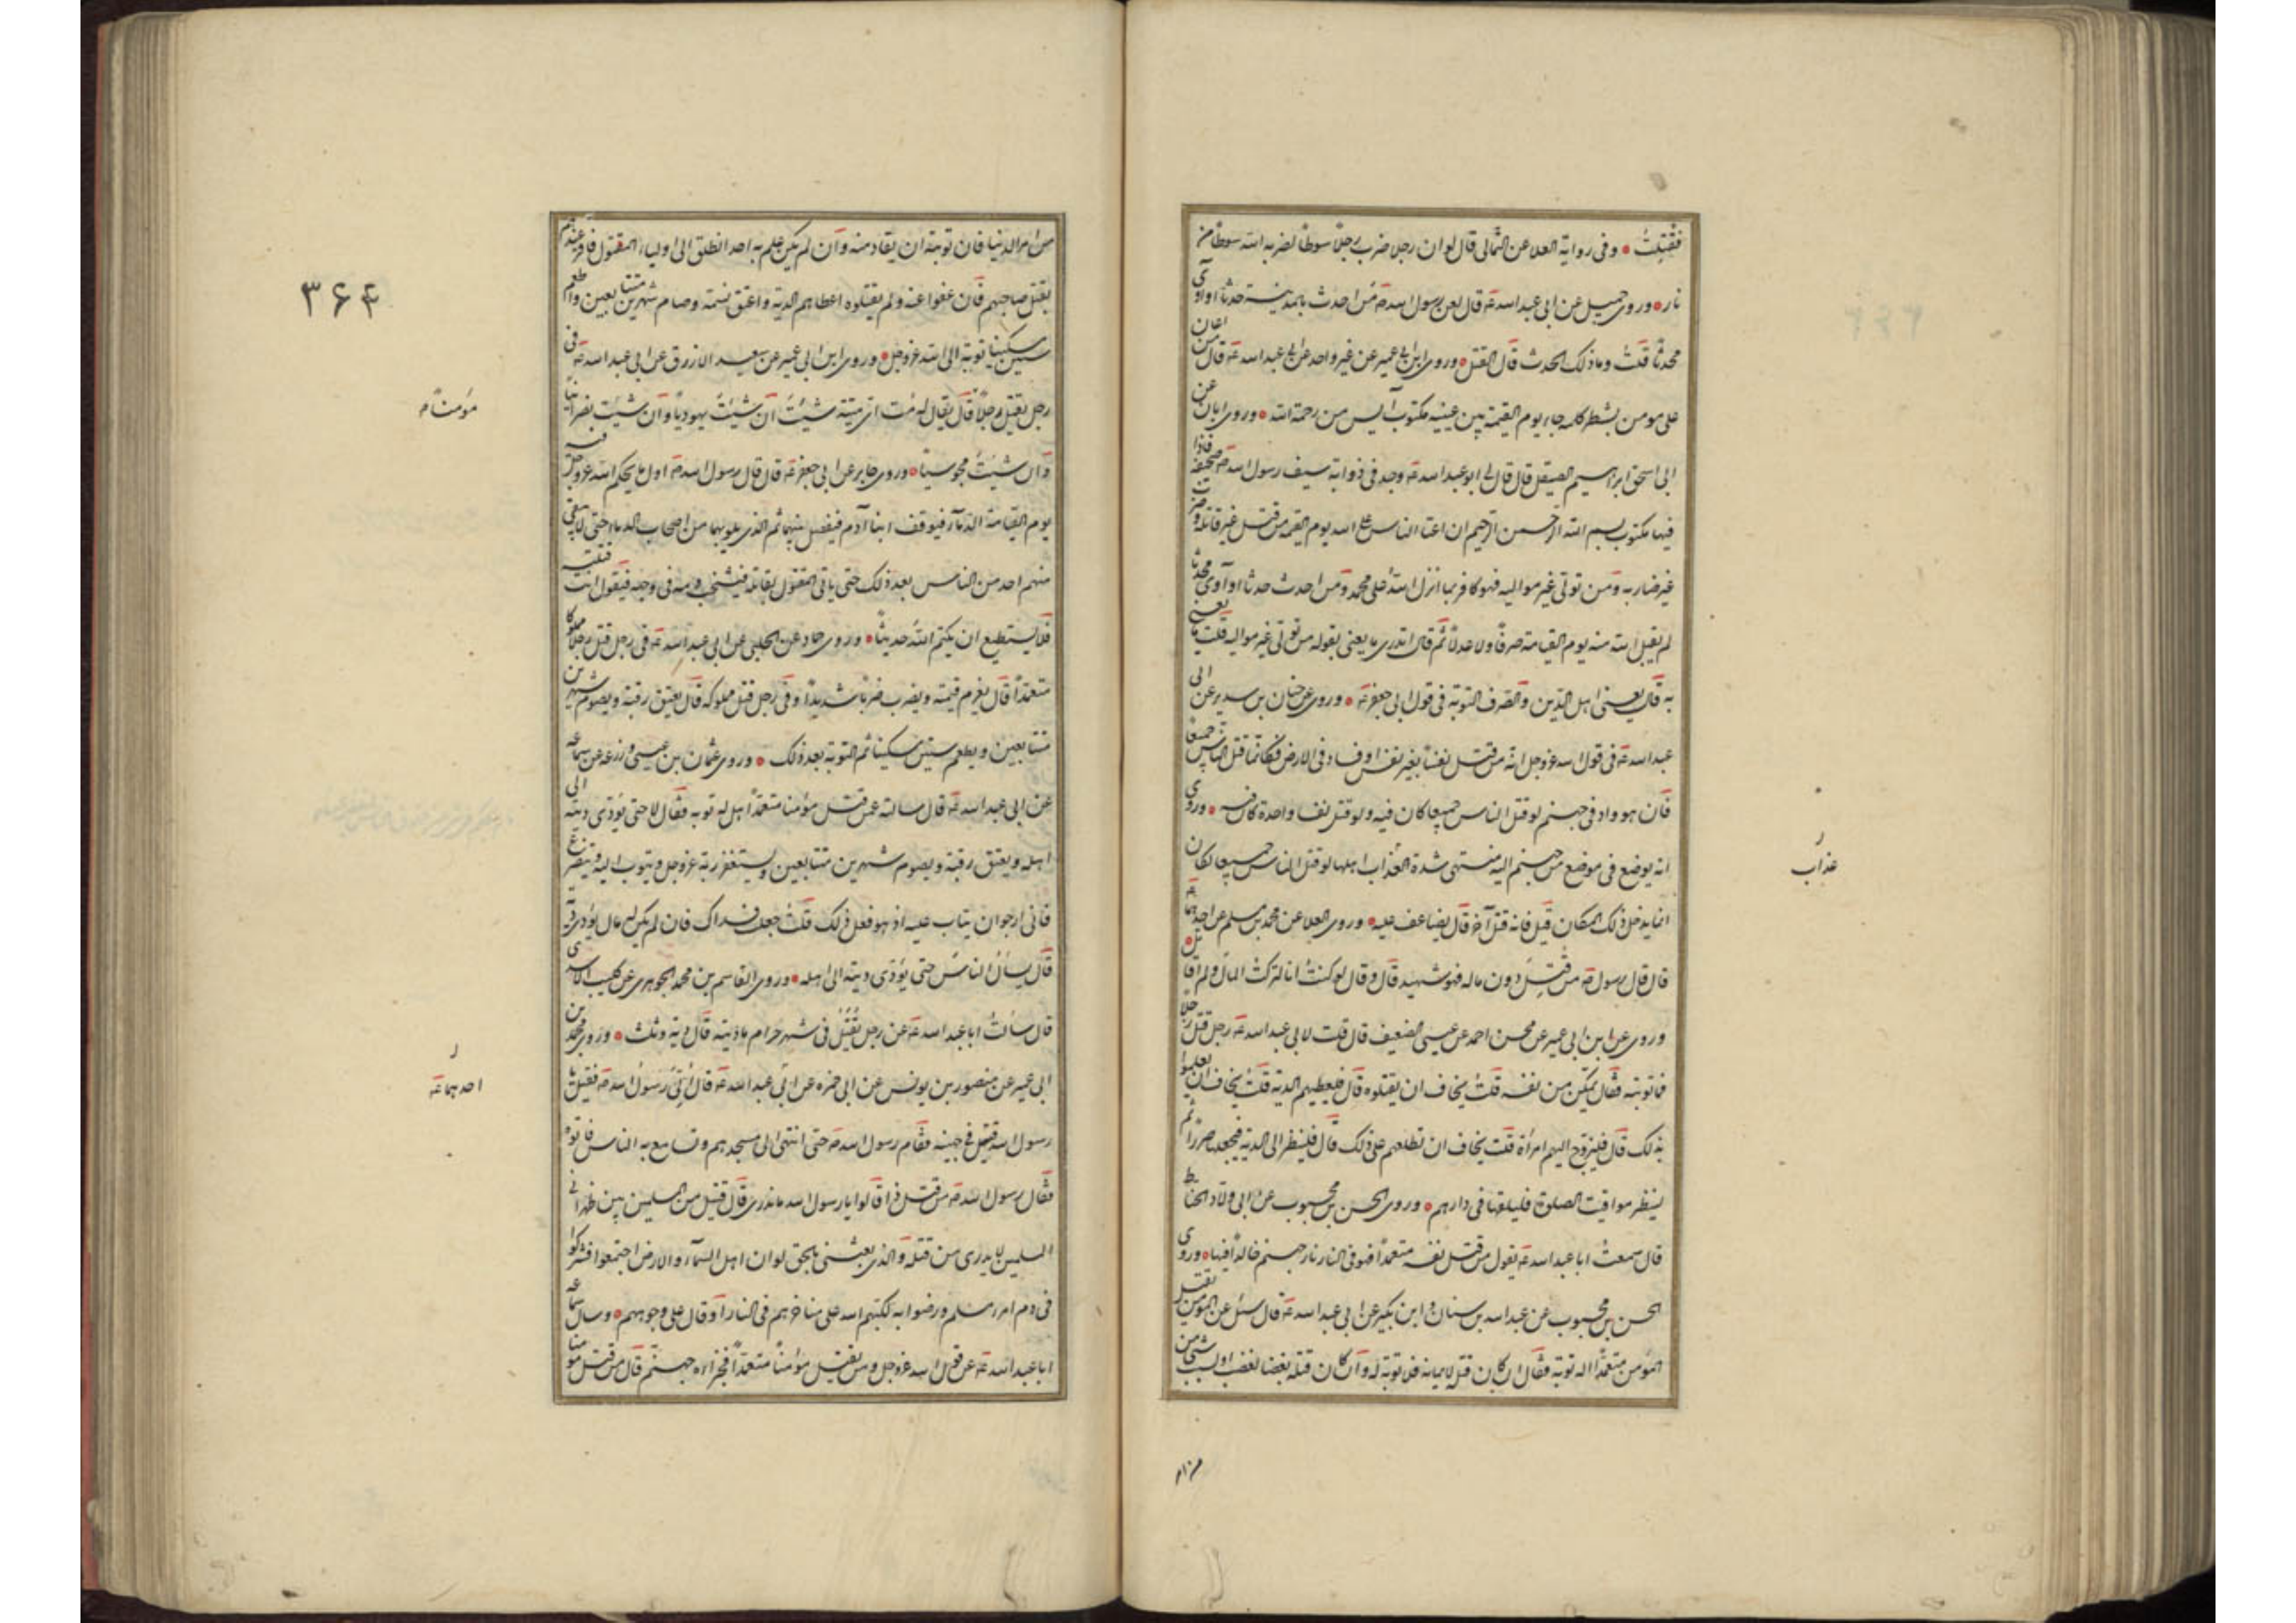 فقتلت وفی روایة العلا عن الثمالی قال لو ان رجلا ضرب رجلاً سوطاً لضربه الله سوطاً من
نار وروی جمیل عن ابی عبد الله عه قال لعن رسول الله صه من احدث بالمدینة حدثا او اوی
محدثا قلت وما ذلک الحدث قال القتل وروی ابن ابی عمیر عن غیر واحد عن ابی عبد الله عه قال من اعان
علی مومن بشطر کلمه جاء یوم القیمة بین عینیه مکتوب آیس من رحمة الله وروی ابان عن
ابی اسحق ابراهیم الصیقل قال قال لی ابو عبد الله عه وجد فی ذوابة سیف رسول الله صه صحیفة فاذا
فیها مکتوب بسم الله الرحمن الرحیم ان اعتا الناس علی الله یوم القیمه من قتل غیر قاتله وضرب
غیر ضاربه ومن تولی غیر موالیه فهو کافر بما انزل الله علی محمد ومن احدث حدثا او آوی محدثا
لم یقبل الله منه یوم القیامة صرفاً ولا عدلاً ثم قال اتدری ما یعنی بقوله من تولی غیر موالیه قلت ما یعنی
به قال یعنی اهل الدین والصرف التوبة فی قول ابی جعفر عه وروی عن حنان بن سدیر عن ابی
عبد الله عه فی قول الله عز وجل انه من قتل نفساً بغیر نفس او فساد فی الارض فکانما قتل الناس جمیعا
قال هو واد فی جهنم لو قتل الناس جمیعا کان فیه ولو قتل نفسا واحدة کان فیه وروی
انه یوضع فی موضع من جهنم الیه منتهی شدة العذاب اهلها لو قتل الناس جمیعا لکان
انما یدخل ذلک المکان قیل فانه قتل آخر قال یضاعف علیه وروی العلا عن محمد بن مسلم عن احدهما عه
قال قال رسول صه من قتل دون ماله فهو شهید قال وقال لو کنت انا لترکت المال ولم اقاتل
وروی عن ابن ابی عمیر عن محسن احمد عن عیسی الضعیف قال قلت لابی عبد الله عه رجل قتل رجلا
ما توبته فقال یمکن من نفسه قلت یخاف ان یقتلوه قال فلیعطیهم الدیة قلت یخاف ان یعلموا
بذلک قال فلیزوج الیهم امرأة قلت یخاف ان تطلعهم علی ذلک قال فلینظر الی الدیة فیجعلها صررا ثم
لینظر مواقیت الصلوة فلیلقها فی دارهم وروی الحسن بن محبوب عن ابی ولاد الحناط
قال سمعت ابا عبد الله عه یقول من قتل نفسه متعمداً فهو فی النار نار جهنم خالداً فیها وروی
الحسن بن محبوب عن عبد الله بن سنان وابن بکیر عن ابی عبد الله عه قال سئل عن المؤمن یقتل
المؤمن متعمداً اله توبة فقال ان کان قتله لایمانه فلا توبة له وان کان قتله بغضا لغضب او لسبب شئ من
من امر
عذاب
من امر الدنیا فان توبته ان یقاد منه وان لم یکن علم به احد انطلق الی اولیاء المقتول فاقر عندهم
بقتل صاحبهم فان عفوا عنه ولم یقتلوه اعطاهم الدیة واعتق نسمة وصام شهرین متتابعین واطعم
ستین مسکینا توبة الی الله عز وجل وروی ابن ابی عمیر عن سعید الازرق عن ابی عبد الله عه فی
رجل یقتل رجلاً قال یقال له مت ای میتة شئت ان شئت یهودیاً وان شئت نصرانیاً
وان شئت مجوسیاً وروی جابر عن ابی جعفر عه قال قال رسول الله صه اول ما یحکم الله عز وجل فیه
یوم القیامة الدماء فیوقف ابنا آدم فیفصل بینهما ثم الذی یلونهما من اصحاب الدماء حتی لا یبقی
منهم احد من الناس بعد ذلک حتی یاتی المقتول بقاتله فیشخب دمه فی وجهه فیقول انت قتلته
فلا یستطیع ان یکتم الله حدیثاً وروی حماد عن الحلبی عن ابی عبد الله عه فی رجل قتل رجلا مملوکا
متعمداً قال یغرم قیمته ویضرب ضربا شدیداً وفی رجل قتل مملوکه قال یعتق رقبة ویصوم شهرین
متتابعین ویطعم ستین مسکینا ثم التوبة بعد ذلک وروی عثمان بن عیسی وزرعه عن سماعه
عن ابی عبد الله عه قال سالته عمن قتل مؤمنا متعمداً هل له توبه فقال لا حتی یؤدی دیته الی
اهله ویعتق رقبة ویصوم شهرین متتابعین ویستغفر ربه عز وجل ویتوب الیه ویتضرع
فانی ارجو ان یتاب علیه اذ هو فعل ذلک قلت جعلت فداک فان لم یکن له مال یؤدی دیته
قال یسأل الناس حتی یؤدی دیته الی اهله وروی القاسم بن محمد الجوهری عن کلیب الاسدی
قال سألت ابا عبد الله عه عن رجل یقتل فی شهر حرام ما دیته قال دیة وثلث وروی محمد بن
ابی عمیر عن منصور بن یونس عن ابی حمزه عن ابی عبد الله عه قال اُتی رسول الله صه فقیل یا
رسول الله قتیل فی جهینه فقام رسول الله صه حتی انتهی الی مسجدهم وتسامع به الناس فاتوه
فقال رسول الله صه من قتل ذا قالوا یا رسول الله ما ندری قال قتیل من المسلمین بین ظهرانی
المسلمین لا یدری من قتله والذی بعثنی بالحق لو ان اهل السماء والارض اجتمعوا فشرکوا
فی دم امرء مسلم ورضوا به لکبهم الله علی مناخرهم فی النار او قال علی وجوههم وسال سماعه
ابا عبد الله عه عن قول الله عز وجل ومن یقتل مؤمناً متعمداً فجزاؤه جهنم قال من قتل مؤمنا
۳۶۴
مؤمناً م
احدهما عه